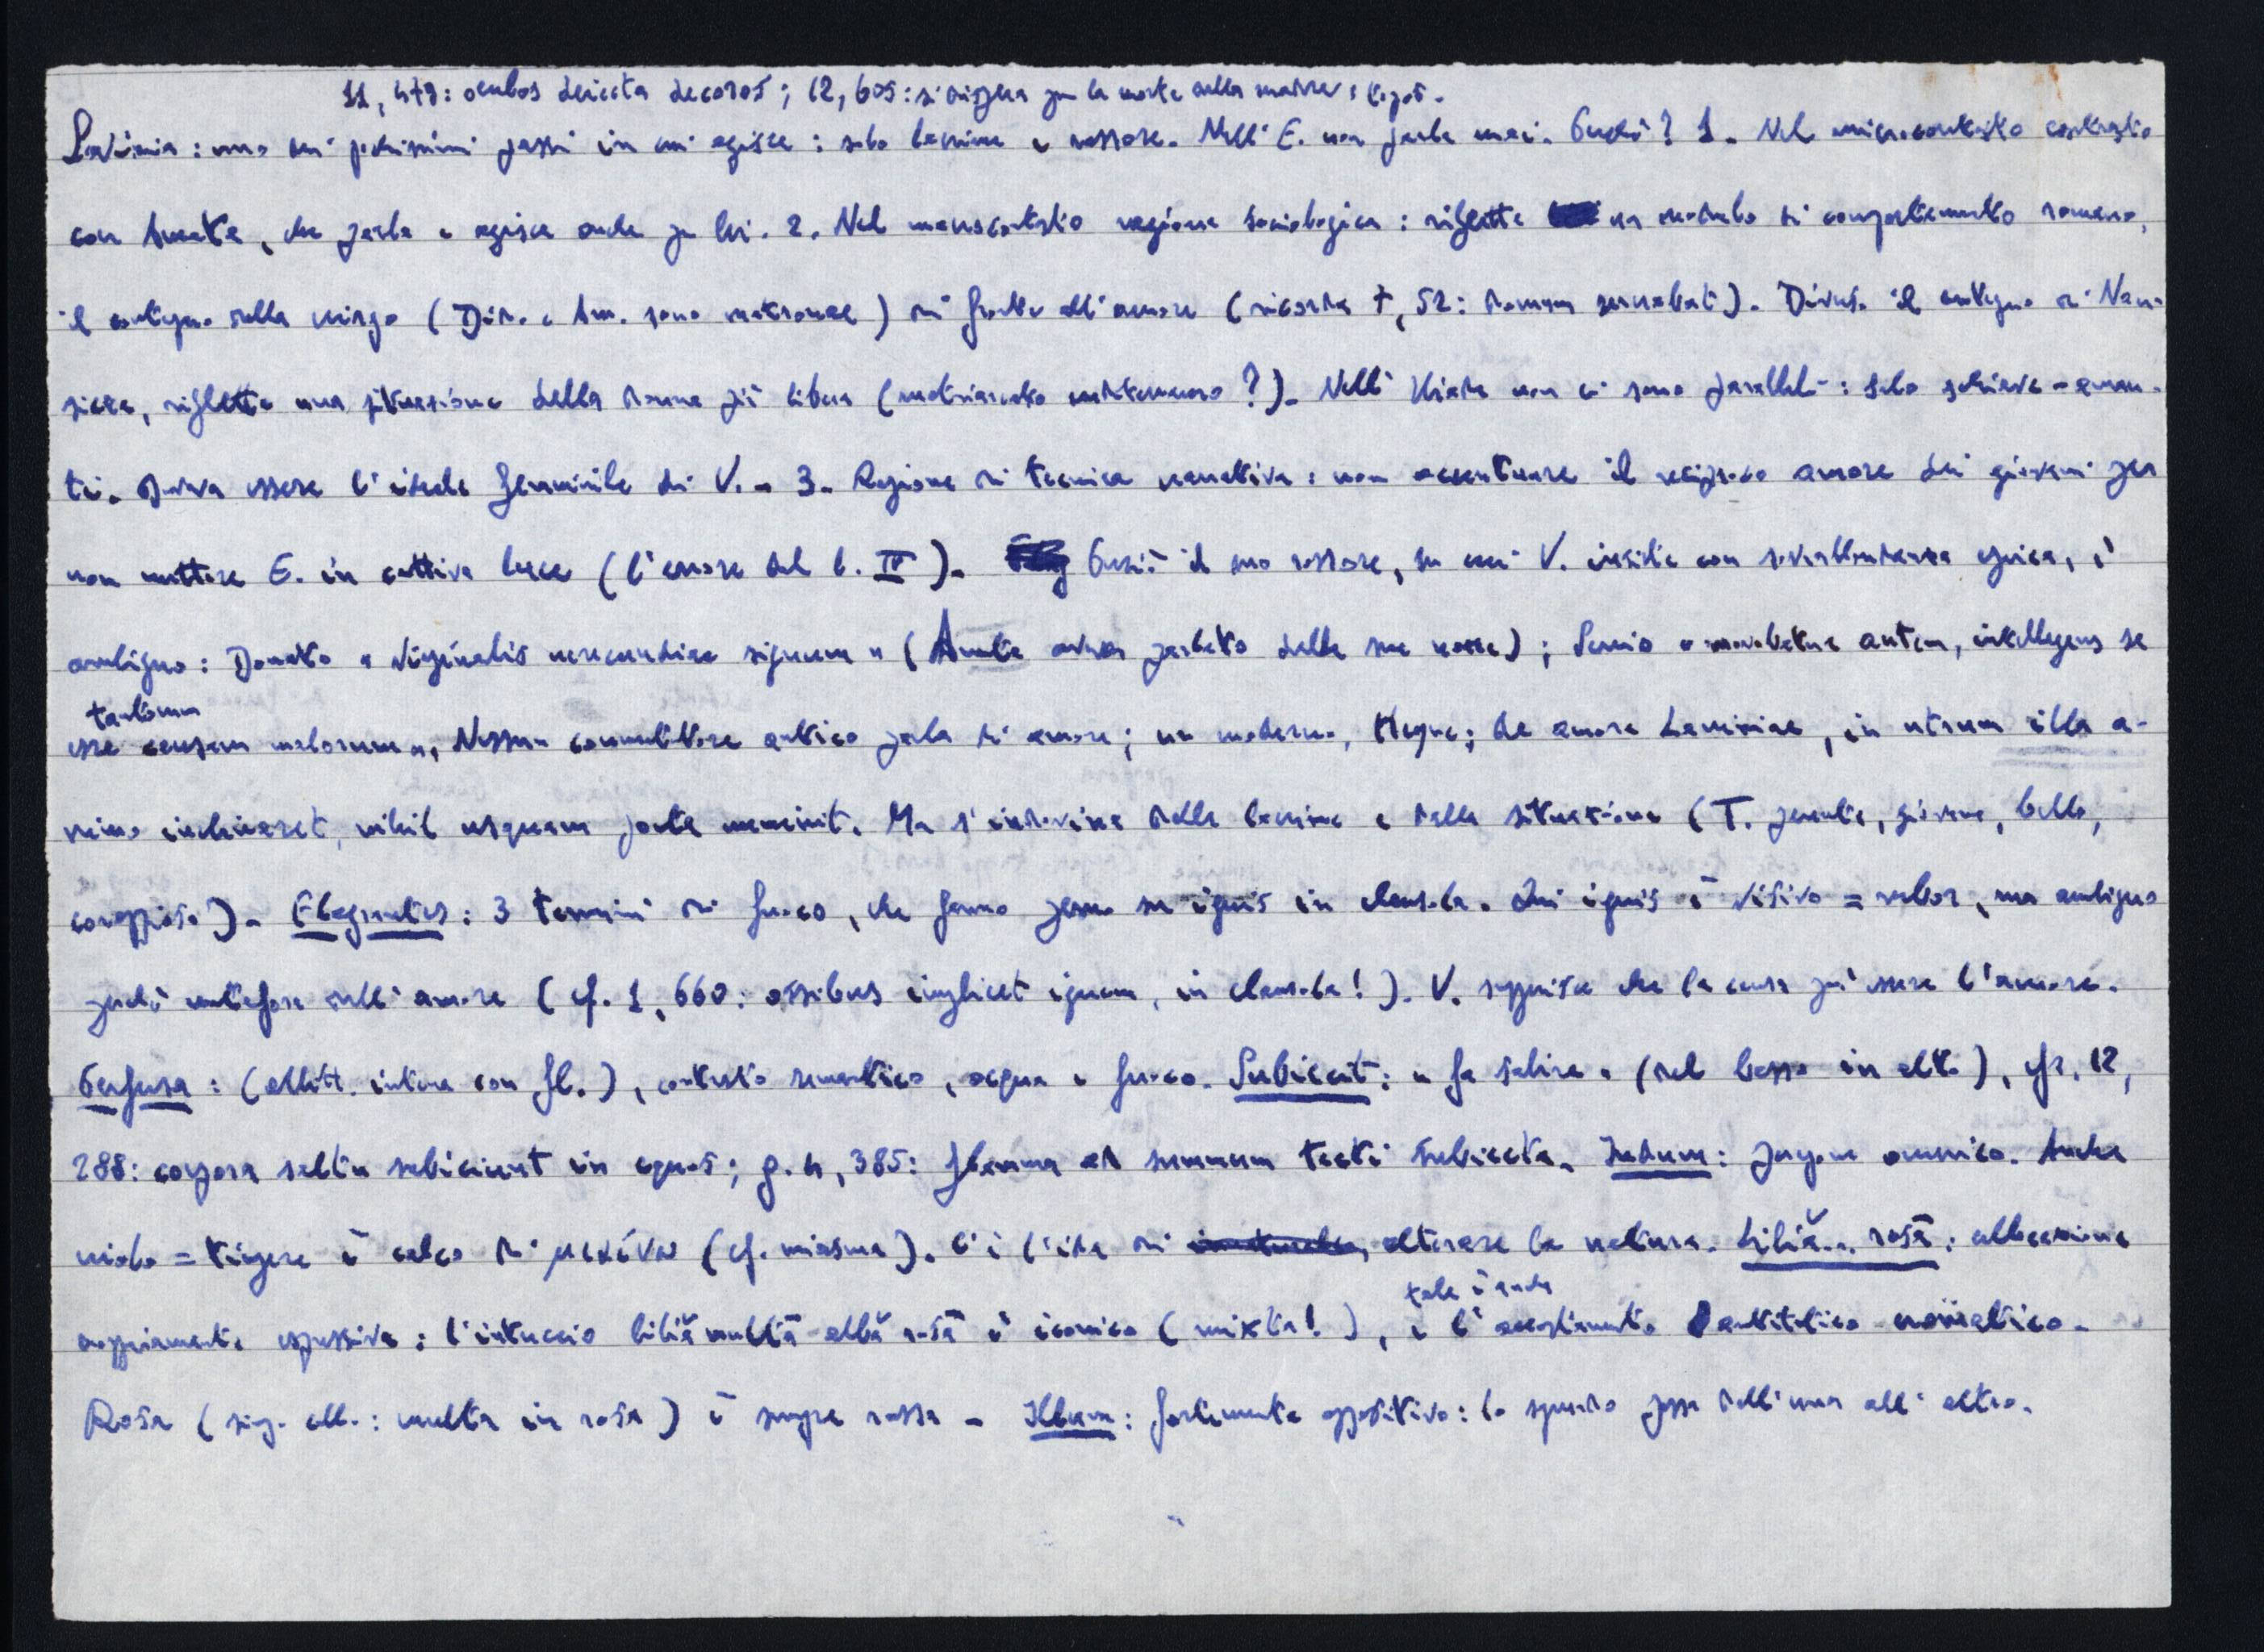 11, 479: oculos deiecta decoros; 12, 605: si dispera per la morte della madre;
Lavinia: uno dei pochissimi passi in cui agisce: solo lacrime e rossore. Nell'E. non parla mai. Perché? 1. Nel microcontesto contrasto
con Amata, che parla e agisce anche per lei. 2. Nel macrocontesto ragione sociologica: riflette un modulo di comportamento romano,
il contegno della virgo (Did. e Am. sono matronae) di fronte all'amore (ricorda 7, 52: domum servabat). Diverso il contegno di Nau-
sicaa, riflette una situazione della donna più libera (matriarcato mediterraneo?). Nell'Iliade non ci sono paralleli: solo schiave-aman-
ti. Doveva essere l'ideale femminile di V. - 3. Ragione di tecnica narrativa: non accentuare il reciproco amore dei giovani per
non mettere E. in cattiva luce (l'errore del l. IV). Perciò il suo rossore, su cui V. insiste con sovrabbondanza epica, è
ambiguo: Donato "virginalis verecundiae signum" (Amata aveva parlato delle sue nozze); Servio "movebatur autem, intellegens se
esse causam tantorum malorum". Nessun commentatore antico parla di amore; un moderno, Heyne: de amore Laviniae, in utrum illa a-
nimo inclinaret, nihil usquam poeta meminit. Ma s'indovina dalle lacrime e dalla situazione (T. parente, giovane, bello,
coraggioso). Flagrantes: 3 termini di fuoco, che fanno perno su ignis in clausola. Qui ignis è visivo = rubor, ma ambiguo
perché metafora dell'amore (cf. 1, 660: ossibus implicet ignem, in clausola!). V. suggerisce che la causa può essere l'amore.
Perfusa: (allitt. interna con fl.), contrasto semantico, acqua e fuoco. Subiecit: "fa salire" (dal basso in alto), cfr. 12,
288: corpora saltu subiciunt in equos; g. 4, 385: flamma ad summum tecti subiecta. Indum: porpora omerico. Anche
violo = tingere è calco di μιαίνω (cf. miasma). C'è l'idea di alterare la natura. Liliă... rosā: allocazione
doppiamente espressiva: l'intreccio liliă multā albă rosā è iconico (mixta!), e tale è anche l'accostamento antitetico cromatico.
Rosa (sing. coll.: multa in rosa) è sempre rossa - Illum: fortemente oppositivo: lo sguardo passa dall'una all'altro.